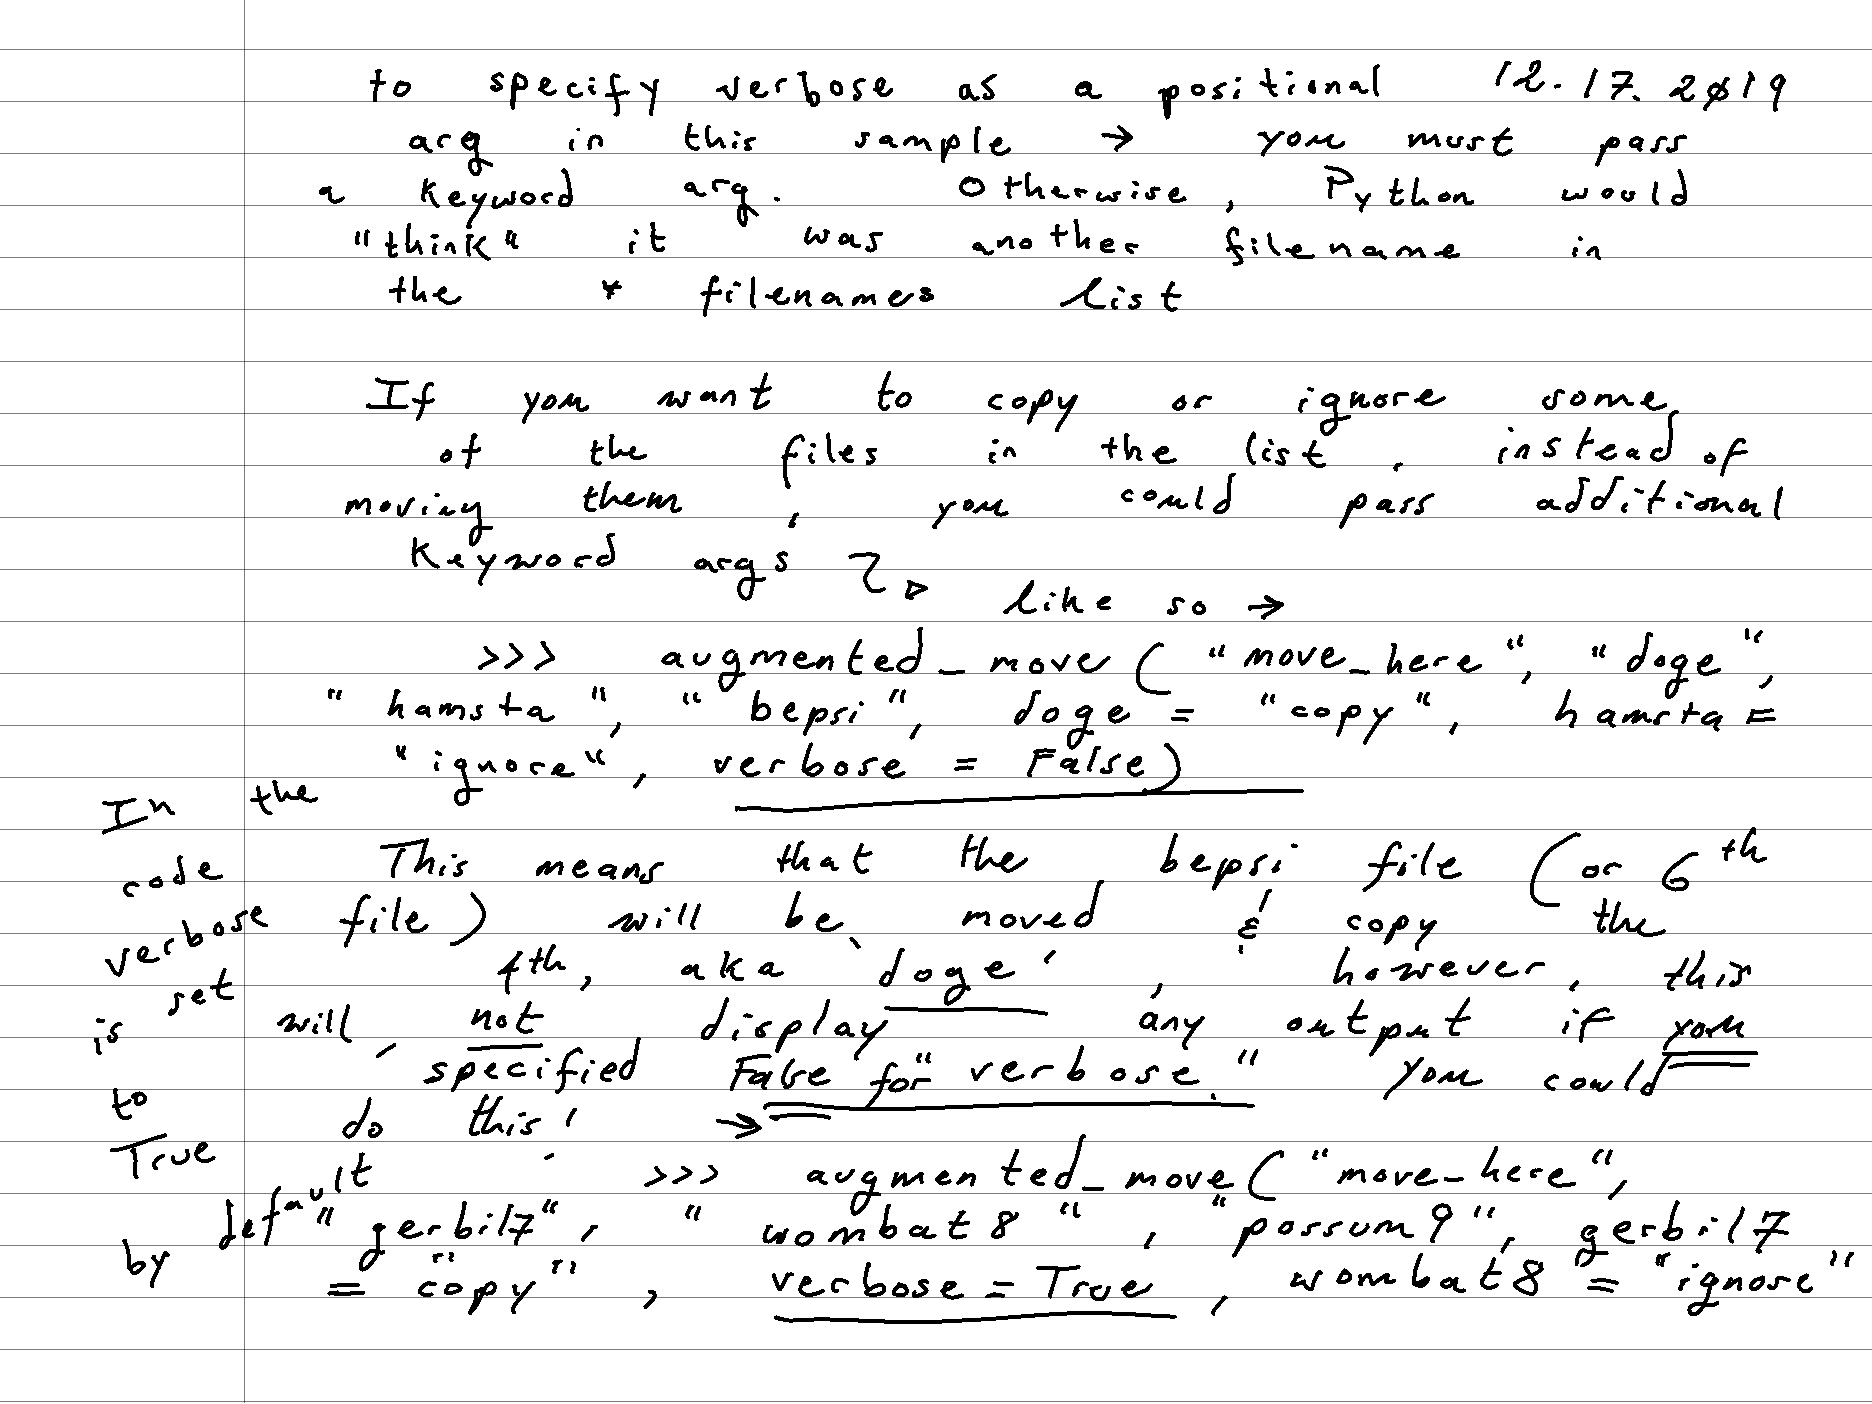 to specify verbose as a positional 12.17.2019
arg in this sample → you must pass
a keyword arg. Otherwise, Python would
"think" it was another filename in
the * filenames list
If you want to copy or ignore some
of the files in the list, instead of
moving them, you could pass additional
keyword args
like so →
>>> augmented_move ( "move_here", "doge",
"hamsta", "bepsi", doge = "copy", hamsta =
"ignore", verbose = False)
This means that the bepsi file (or 6th
file) will be moved & copy the
4th, aka 'doge', however, this
will not display any output if you
specified False for "verbose." You could
do this! →
>>> augmented_move ( "move_here",
"gerbil7", "wombat8", "possum9", gerbil7
= "copy", verbose = True, wombat8 = "ignore"
In the
code
verbose
set
is
to
True
default
by